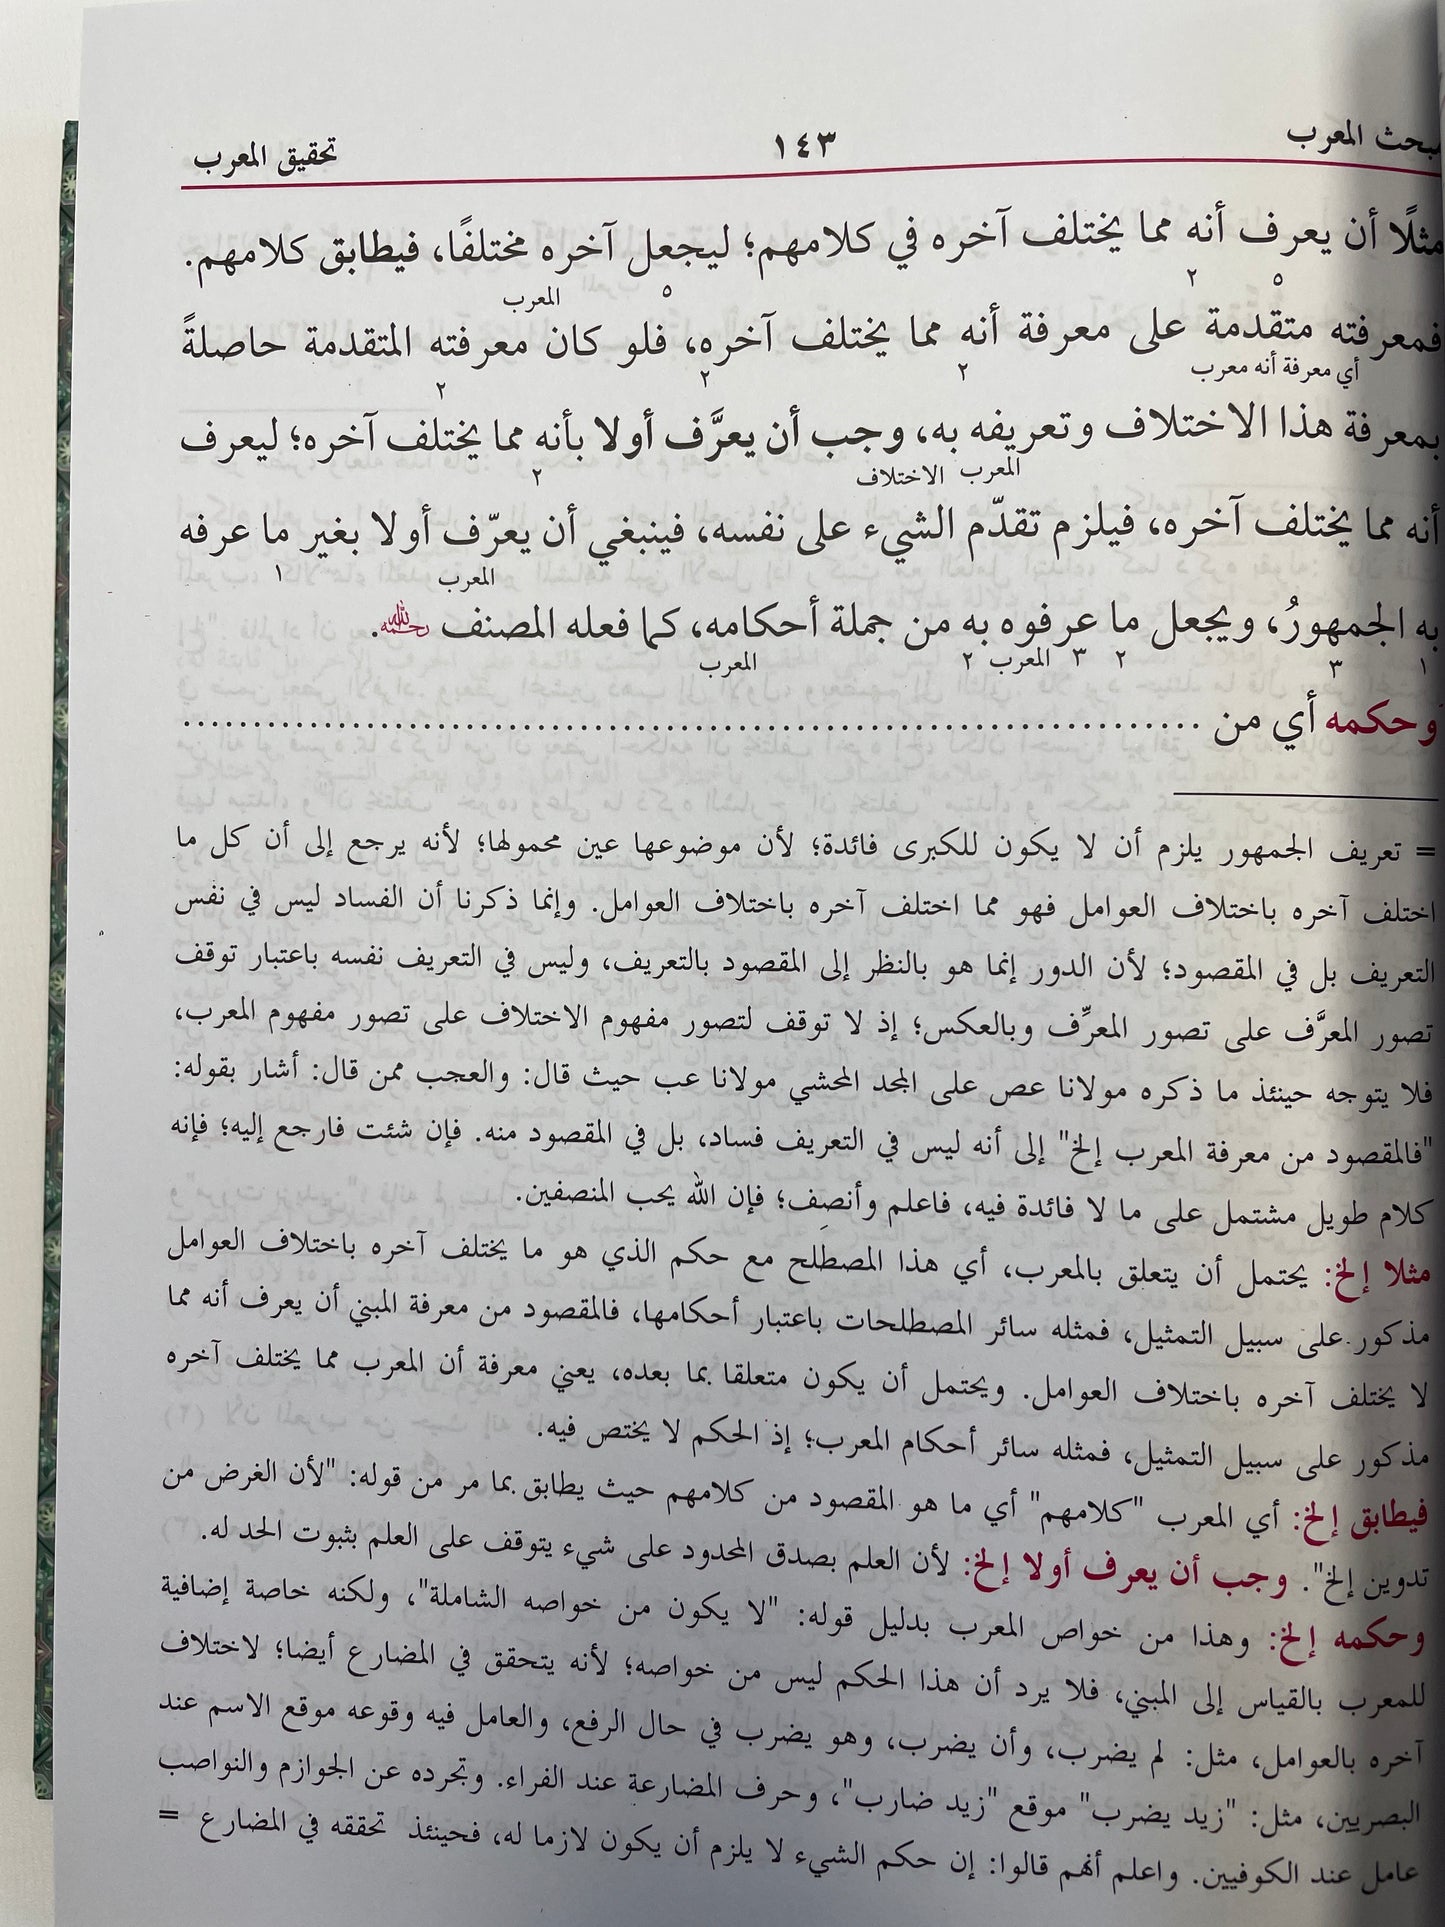 مبحث المعرب ١٤٣ تحقيق المعرب
مثلًا أن يعرف أنه مما يختلف آخره في كلامهم؛ ليجعل آخره مختلفًا، فيطابق كلامهم.
٥ ٢ ٥ المعرب
فمعرفته متقدمة على معرفة أنه مما يختلف آخره، فلو كان معرفته المتقدمة حاصلةً
أي معرفة أنه معرب ٢ ٢ ٢
بمعرفة هذا الاختلاف وتعريفه به، وجب أن يعرَّف أولا بأنه مما يختلف آخره؛ ليعرف
المعرب الاختلاف ٢
أنه مما يختلف آخره، فيلزم تقدّم الشيء على نفسه، فينبغي أن يعرّف أولا بغير ما عرفه
المعرب ١
به الجمهورُ، ويجعل ما عرفوه به من جملة أحكامه، كما فعله المصنف رحمه الله.
١ ٣ ٢ ٣ المعرب ٢ المعرب
وحكمه أي من ........................................................................
= تعريف الجمهور يلزم أن لا يكون للكبرى فائدة؛ لأن موضوعها عين محمولها؛ لأنه يرجع إلى أن كل ما
اختلف آخره باختلاف العوامل فهو مما اختلف آخره باختلاف العوامل. وإنما ذكرنا أن الفساد ليس في نفس
التعريف بل في المقصود؛ لأن الدور إنما هو بالنظر إلى المقصود بالتعريف، وليس في التعريف نفسه باعتبار توقف
تصور المعرَّف على تصور المعرِّف وبالعكس؛ إذ لا توقف لتصور مفهوم الاختلاف على تصور مفهوم المعرب،
فلا يتوجه حينئذ ما ذكره مولانا عص على المجد المحشي مولانا عب حيث قال: والعجب ممن قال: أشار بقوله:
"فالمقصود من معرفة المعرب إلخ" إلى أنه ليس في التعريف فساد، بل في المقصود منه. فإن شئت فارجع إليه؛ فإنه
كلام طويل مشتمل على ما لا فائدة فيه، فاعلم وأنصِف؛ فإن الله يحب المنصفين.
مثلا إلخ: يحتمل أن يتعلق بالمعرب، أي هذا المصطلح مع حكم الذي هو ما يختلف آخره باختلاف العوامل
مذكور على سبيل التمثيل، فمثله سائر المصطلحات باعتبار أحكامها، فالمقصود من معرفة المبني أن يعرف أنه مما
لا يختلف آخره باختلاف العوامل. ويحتمل أن يكون متعلقا بما بعده، يعني معرفة أن المعرب مما يختلف آخره
مذكور على سبيل التمثيل، فمثله سائر أحكام المعرب؛ إذ الحكم لا يختص فيه.
فيطابق إلخ: أي المعرب "كلامهم" أي ما هو المقصود من كلامهم حيث يطابق بما مر من قوله: "لأن الغرض من
تدوين إلخ". وجب أن يعرف أولا إلخ: لأن العلم بصدق المحدود على شيء يتوقف على العلم بثبوت الحد له.
وحكمه إلخ: وهذا من خواص المعرب بدليل قوله: "لا يكون من خواصه الشاملة"، ولكنه خاصة إضافية
للمعرب بالقياس إلى المبني، فلا يرد أن هذا الحكم ليس من خواصه؛ لأنه يتحقق في المضارع أيضا؛ لاختلاف
آخره بالعوامل، مثل: لم يضرب، وأن يضرب، وهو يضرب في حال الرفع، والعامل فيه وقوعه موقع الاسم عند
البصريين، مثل: "زيد يضرب" موقع "زيد ضارب"، وحرف المضارعة عند الفراء. وتجرده عن الجوازم والنواصب
عامل عند الكوفيين. واعلم أنهم قالوا: إن حكم الشيء لا يلزم أن يكون لازما له، فحينئذ تحققه في المضارع =